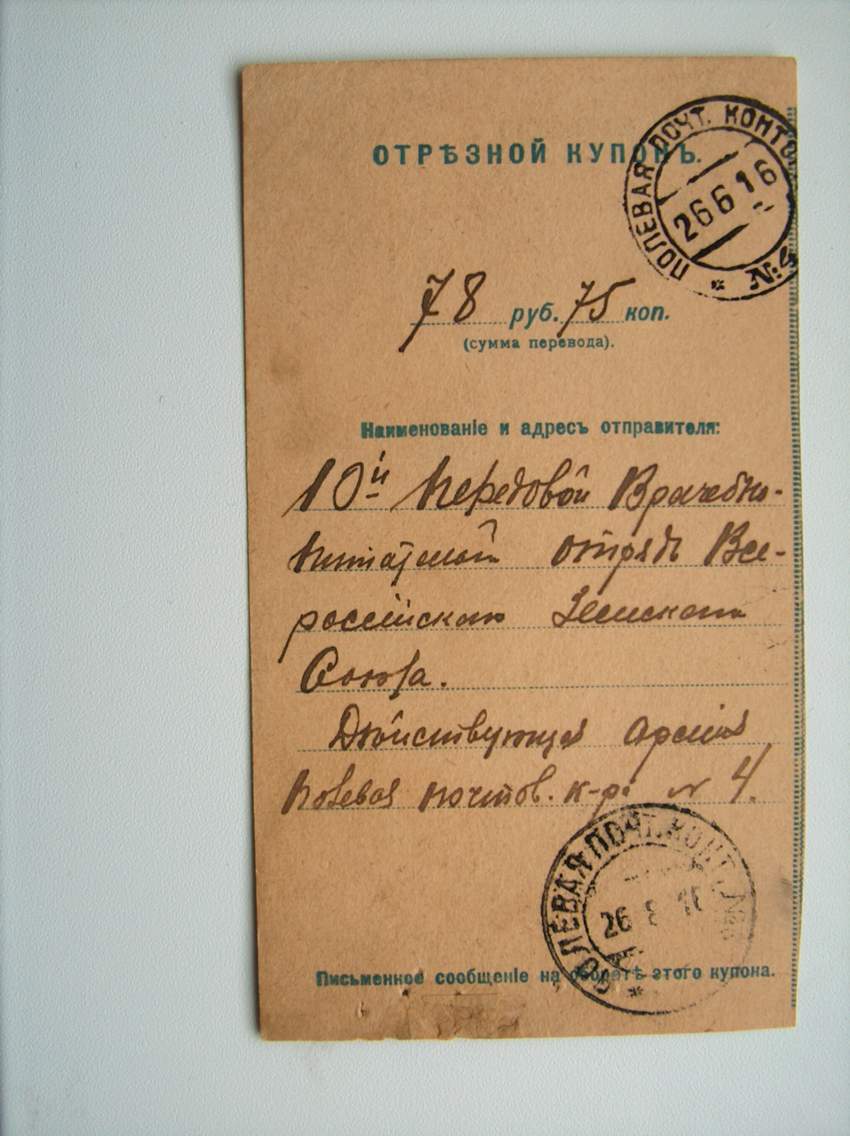 ОТРѢЗНОЙ КУПОНЪ.
ПОЛЕВАЯ ПОЧТ. КОНТО
26 6 16
№ 4
78 руб. 75 коп.
(сумма перевода).
Наименованіе и адресъ отправителя:
10й Передовой Врачебно-
питательный отрядъ Все-
россійскаго Земскаго
Союза.
Дѣйствующая Армія
Полевая почтов. к-ра № 4.
ПОЛЕВАЯ ПОЧТ. КОНТ. №
26 16
Письменное сообщеніе на оборотѣ этого купона.